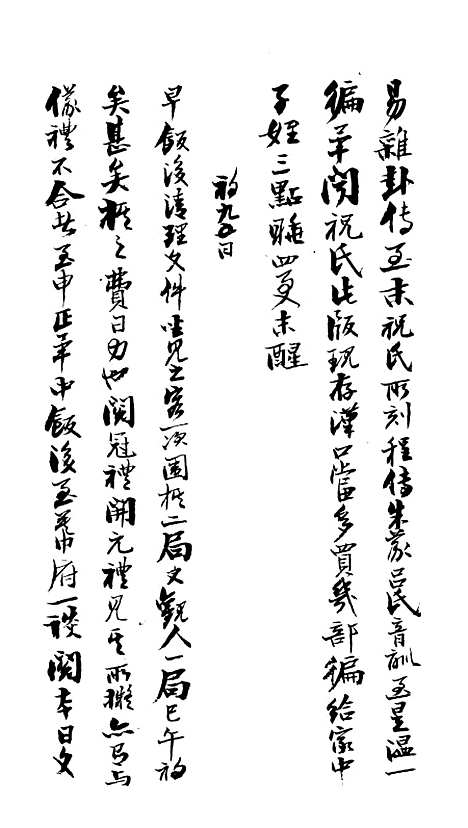 易雜卦傳至末祝氏所刻程傳朱蒙呂氏音訓至是温一
徧畢閱祝氏此版現存漢口當多買幾部徧給家中
子姪三點睡四更未醒
初九日
早飯後清理文件坐見之客一次圍棋二局又觀人一局已午初
矣甚矣棋之費日力也閱冠禮開元禮見其所擬亦有與
儀禮不合者至申正畢中飯後至幕府一談閱本日文